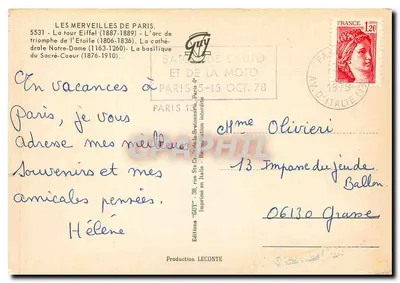 LES MERVEILLES DE PARIS
5531 - La tour Eiffel (1887-1889) - L'arc de
triomphe de l'Etoile (1806-1836). La cathé-
drale Notre-Dame (1163-1260)- La basilique
du Sacré-Coeur (1876-1910).
Guy
FRANCE
1,20
ET DE LA MOTO
PARIS 5-15 OCT. 78
PARIS
AV. D'ITALIE
En vacances à
Paris, je vous
adresse mes meilleurs
souvenirs et mes
amicales pensées.
Hélène
Mme Olivieri
13 Impasse du jeu de
Ballon
06130 Grasse
Editions "GUY" - 39, rue Ste
Imprimé en Italie - Reproduction interdite
Production LECONTE
PHENIX